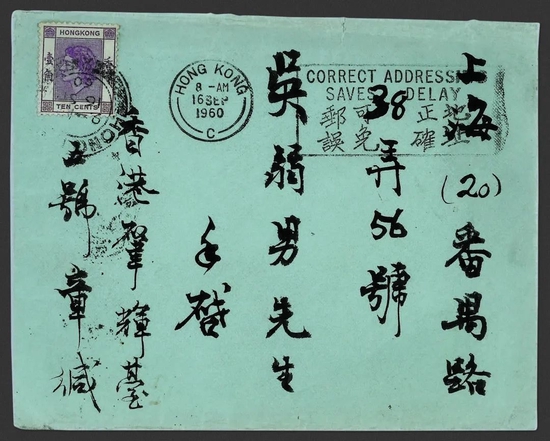 HONGKONG
壹毫
TEN CENTS
HONG KONG
8 - AM
16 SEP
1960
C
CORRECT ADDRESSING
SAVES DELAY
地址正確
可免郵誤
上海(20)番禺路
38弄56號
吳弱男先生
手啟
香港肇輝臺
五號章緘